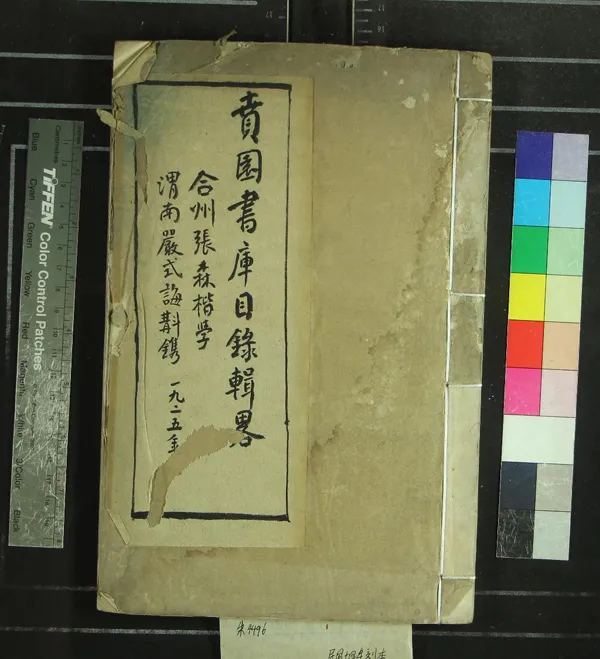 賁園書庫目錄輯畧
合州張森楷学
渭南嚴式誨斠鐫 一九二五年
TIFFEN Color Control Patches
Centimetres
Blue
Cyan
Green
Yellow
Red
Magenta
White
3/Color
Black
朱4496